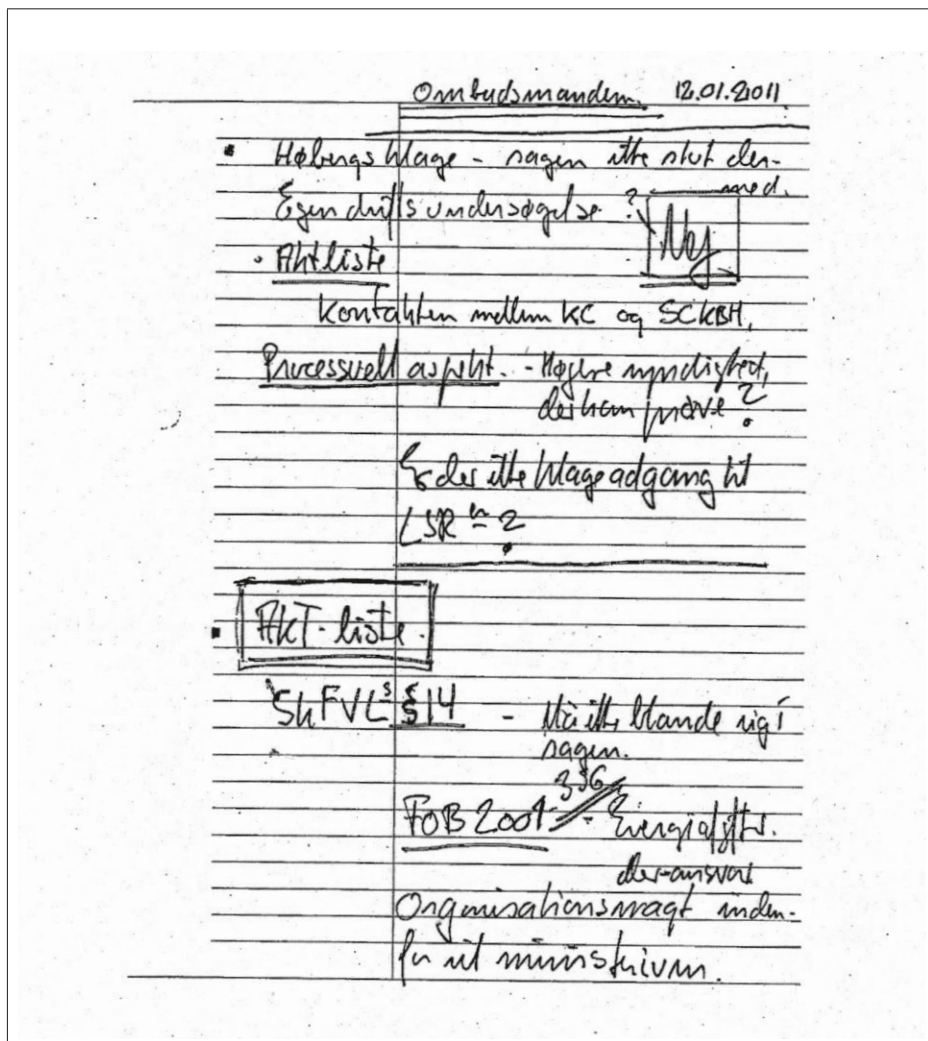 Ombudsmanden. 12.01.2011.
Høbergs klage - sagen ikke slut der-
med.
Egendriftsundersøgelse ?
Nej
Aktliste
Kontakten mellem KC og SCKBH.
Processuelt aspekt. - Højere myndighed,
der kan prøve ?
Er der ikke klageadgang til
LSR ?
AKT-liste.
SkFVL § 14 - Må ikke blande sig i
sagen.
FOB 2001 - 356 - Energiafgifter.
der-ansvar
Organisationsmagt inden-
for sit ministerium.